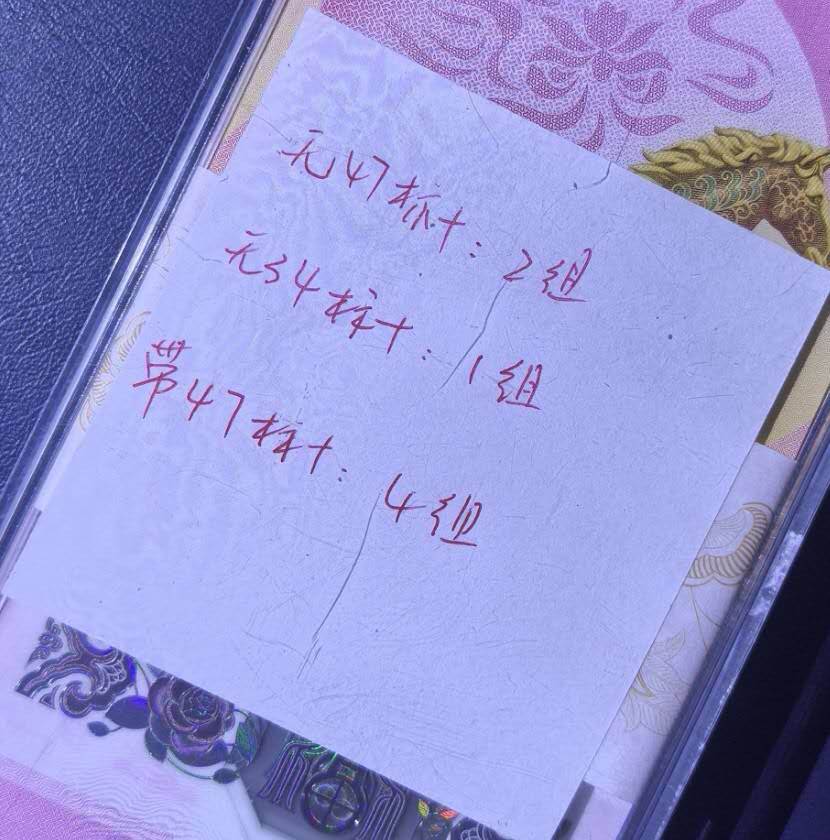 无47标十：2组
无34标十：1组
带47标十：4组